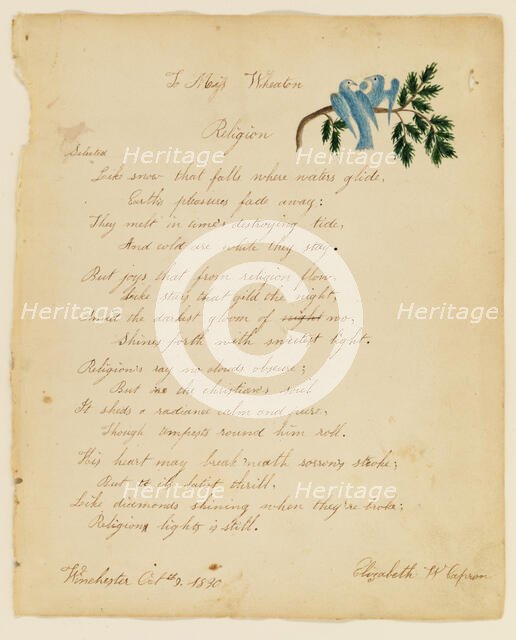 To Miss Wheaton
Religion
Selected
Like snow that falls where waters glide,
Earth's pleasures fade away:
They melt in time's destroying tide,
And cold are while they stay.
But joys that from religion flow
Like stars that gild the night,
Amid the darkest gloom of night wo,
Shines forth with sweetest light.
Religion's ray no clouds obscure;
But the christian's soul
It sheds a radiance calm and pure,
Though tempests round him roll.
His heart may break 'neath sorrow's stroke;
But to its latest thrill,
Like diamonds shining when they're broke;
Religion lights is still.
Winchester Oct 9. 1830
Elizabeth W Capron
Heritage
Heritage
Heritage
Heritage
Heritage
Heritage
Heritage
C